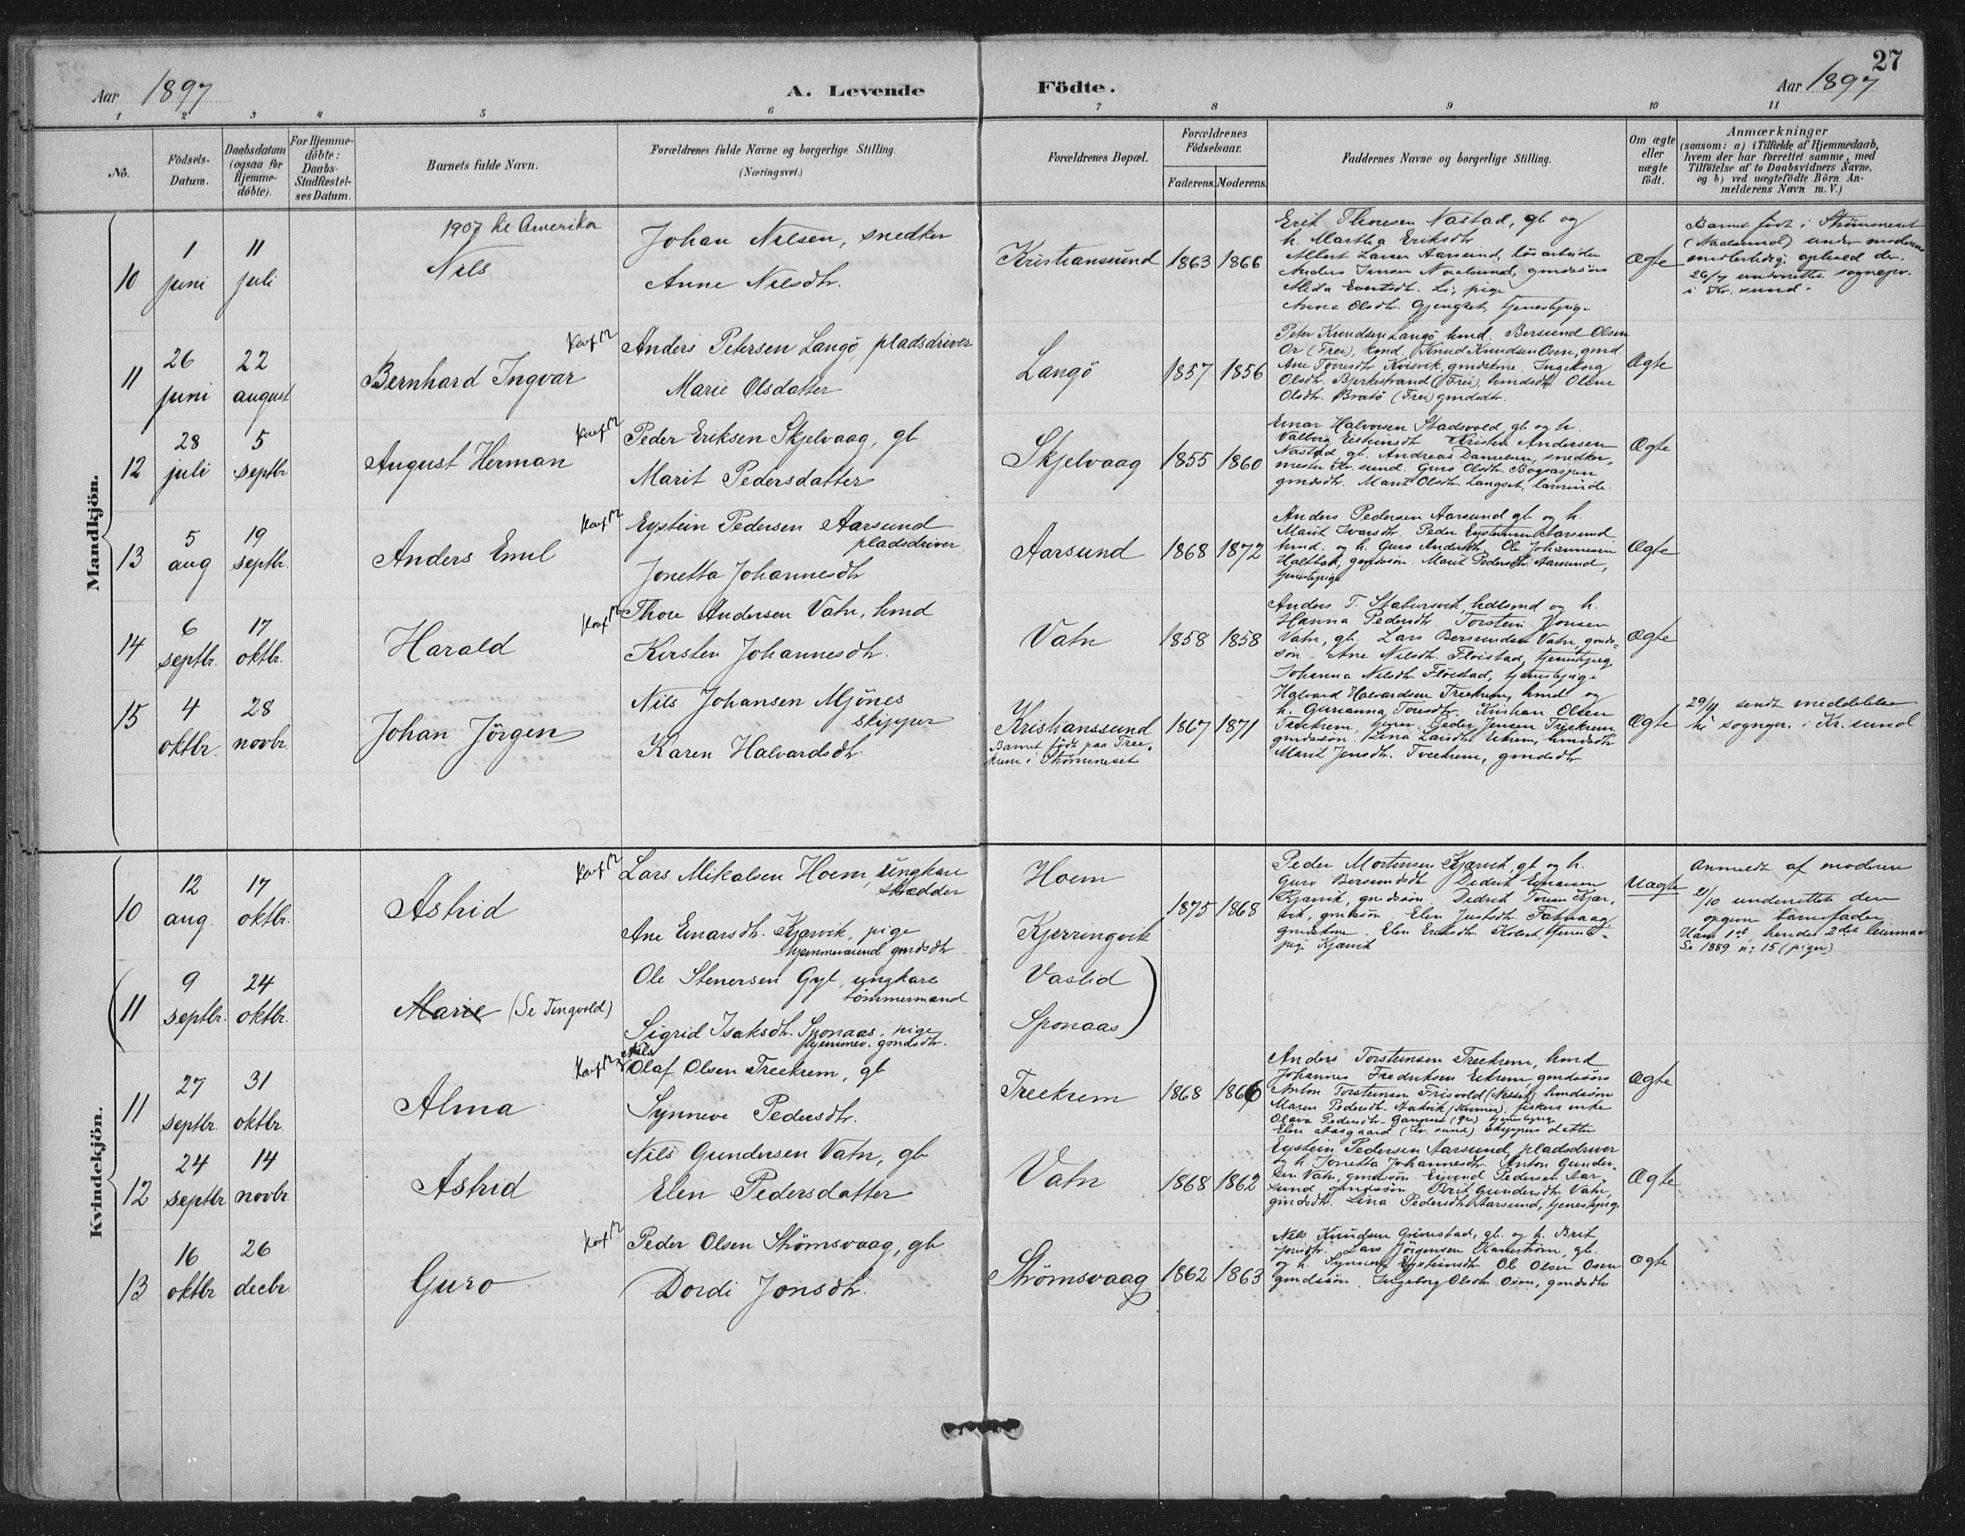 27
Aar 1897
A. Levende Födte.
Aar 1897
1 2 3 4 5 6 7 8 9 10 11
No.
Födsels-
Datum.
Daabsdatum
(ogsaa for
Hjemme-
döbte).
For Hjemme-
döbte:
Daabs-
Stadfæstel-
ses Datum.
Barnets fulde Navn.
Forældrenes fulde Navne og borgerlige Stilling
(Næringsvei.)
Forældrenes Bopæl.
Forældrenes
Födselsaar.
Faderens. Moderens.
Faddernes Navne og borgerlige Stilling.
Om ægte
eller
uægte
födt.
Anmærkninger
(saasom: a) i Tilfælde af Hjemmedaab,
hvem der har forrettet samme, med
Tilföielse af to Daabsvidners Navne,
og b) ved uægtefödte Börn An-
melderens Navn m. V.)
Mandkjön.
10
1 juni
11 juli
1907 til Amerika
Nils
Johan Nilsen, snedker
Anne Nilsdtr.
Kristiansund
1863 1866
Erik Thoresen Nastad, gb og
h. Martha Eriksdtr
Albert Larsen Aarsund, løsarbeider
Anders Jensen Naalsund, gmdssön
Anna Olsdtr. Gjengset, tjenestepige
Ægte
Barnet födt i Strömsneset
(Naalsund) under moderens
midlertidig ophold der.
26/7 underrettet sognepr.
i Kr.sund.
11
26 juni
22 august
Bernhard Ingvar
Anders Petersen Langö pladsdriver
Marie Olsdatter
Langö
1857 1856
Peter Knudsen Langö kmd, Bersund Olsen
Or (Frei), kmd, Knud Knudsen Osen, gmd
Ane Toresdtr Kvisvik, gmdskone, Ingeborg
Olsdtr. Bjerkestrand (Frei), kmdsdtr Oline
Olsdtr. Bratö (Frei) gmdsdtr.
Ægte
12
28 juli
5 septbr
August Herman
Peder Eriksen Skjelvaag, gb
Marit Pedersdatter
Skjelvaag
1855 1860
Einar Halvorsen Stadsvold gb og h.
Valborg Eisteinsdtr Kristen Andersen
Nastad gb. Andreas Danielsen, snedker-
mester Kr.sund. Guro Olsdtr.
gmdsdtr. Marit Olsdtr. Langset, lærerinde.
Ægte
13
5 aug
19 septbr.
Anders Emil
Eystein Pedersen Aarsund
pladsdriver
Jonetta Johannesdtr
Aarsund
1868 1872
Anders Pedersen Aarsund gb og h.
Marit Ivarsdtr. Peder Eysteinsen Aarsund,
kmd. og h. Guro Andersdtr, Ole Johannesen
gmdssön. Marit Pedersdtr Aarsund,
tjenestepige
Ægte
14
6 septbr.
17 oktbr.
Harald
Thore Andersen Vatn, kmd
Kirsten Johannesdtr.
Vatn
1858 1858
Anders T. og h.
Hanna Pedersdtr Torstein Jonsen
Vatn, gb. Lars Bersundsen Vatn, gmds-
sön. Ane Nilsdtr. Flöistad, tjenestepige
Johanna Nilsdtr. Flöistad, tjenestepige
Ægte
15
4 oktbr.
28 novbr.
Johan Jörgen
Nils Johansen Mjönes
skipper
Karen Halvardsdtr.
Kristianssund
Barnet födt paa Tree-
krem i Strömsneset
1867 1871
Halvard Halvardsen Treekrem, kmd og
h. Gurianna Toresdtr. Kristian Olsen
Treekrem, Peder Jensen Treekrem
gmdssön, Lina Larsdtr Ekrem, kmdsdtr
Marit Jensdtr. Treekrem, gmdsdtr
Ægte
29/11 sendt meddelelse
til sognepr. i Kr.sund
Kvindekjön.
10
12 aug.
17 oktbr.
Astrid
Lars Mikalsen Hoem, ungkar
skrædder
Ane Einarsdtr. Kjærvik, pige
hjemmeværend gmdsdtr
Hoem
Kjerringvik
1875 1868
Peder Mortensen Kjærvik, gb og h.
Guro Bersundsdtr Didrik Einarsen
Kjærvik, gmdssön. Didrik Toresen Kjær-
vik, gmdssön Elen Justsdtr.
gmdskone. Elen Eriksdtr. tjeneste-
pige Kjærvik
Uægte
Anmeldt af moderen
21/10 underrettet den
opgivne barnefader.
Hans 1st, hendes 2det leiermaal
Se 1889 n: 15 (piger)
11
9 septbr.
24 oktbr.
Marie (Se Tingvold)
Ole Stenersen Gyl, ungkar
tömmermand
Sigrid Isaksdtr. Sponaas, pige
hjemmev. gmdsdtr.
Vaslid
Sponaas
11
27 septbr.
31 oktbr.
Alma
Nils
Olaf Olsen Treekrem, gb
Synneve Pedersdtr.
Treekrem
1868 1866
Anders Torsteinsen Treekrem, kmd
Johannes Fredriksen Ekrem gmdssön
Anton Torsteinsen Frisvold (Nesset) kmdssön
Maren Pedersdtr. fiskers enke
Olava Pedersdtr. tjenestepige
Elen Aasgaard (Kr.sund) skippers datter
Ægte
12
24 septbr
14 novbr.
Astrid
Nils Gundersen Vatn, gb
Elen Pedersdatter
Vatn
1868 1862
Eystein Pedersen Aarsund, pladsdriver
og h. Jonetta Johannesdtr. Anton Gunder-
sen Vatn, gmdssön Eivind Pedersen Aar-
sund gmdssön Berit Gundersdtr Vatn,
gmdsdtr. Lina Pedersdtr Aarsund, tjenestepige
Ægte
13
16 oktbr
26 decbr.
Guro
Peder Olsen Strömsvaag, gb
Dordi Jonsdtr.
Strömsvaag
1862 1863
Nils Knudsen Grimstad, gb. og h. Brit
Jonsdtr. Lars Jörgensen gb.
og h. Synneve Eysteinsdtr Ole Olsen Osen
gmdssön. Ingeborg Olsdtr Osen, gmdsdtr
Ægte